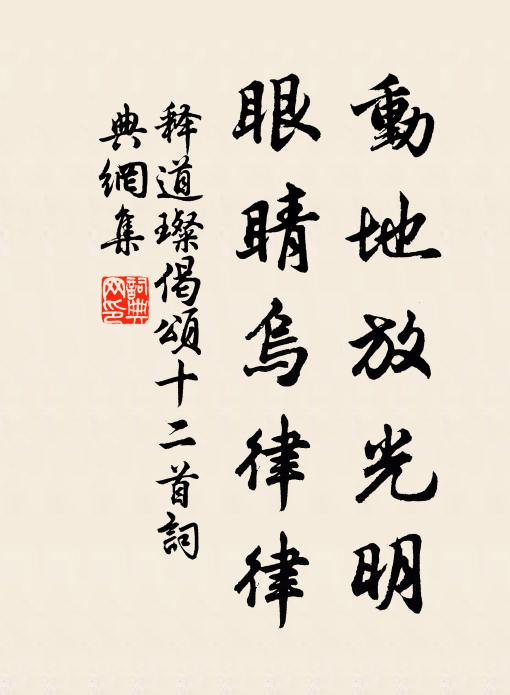 動地放光明
眼睛烏律律
释道璨偈頌十二首詞
典網集
詞典网印